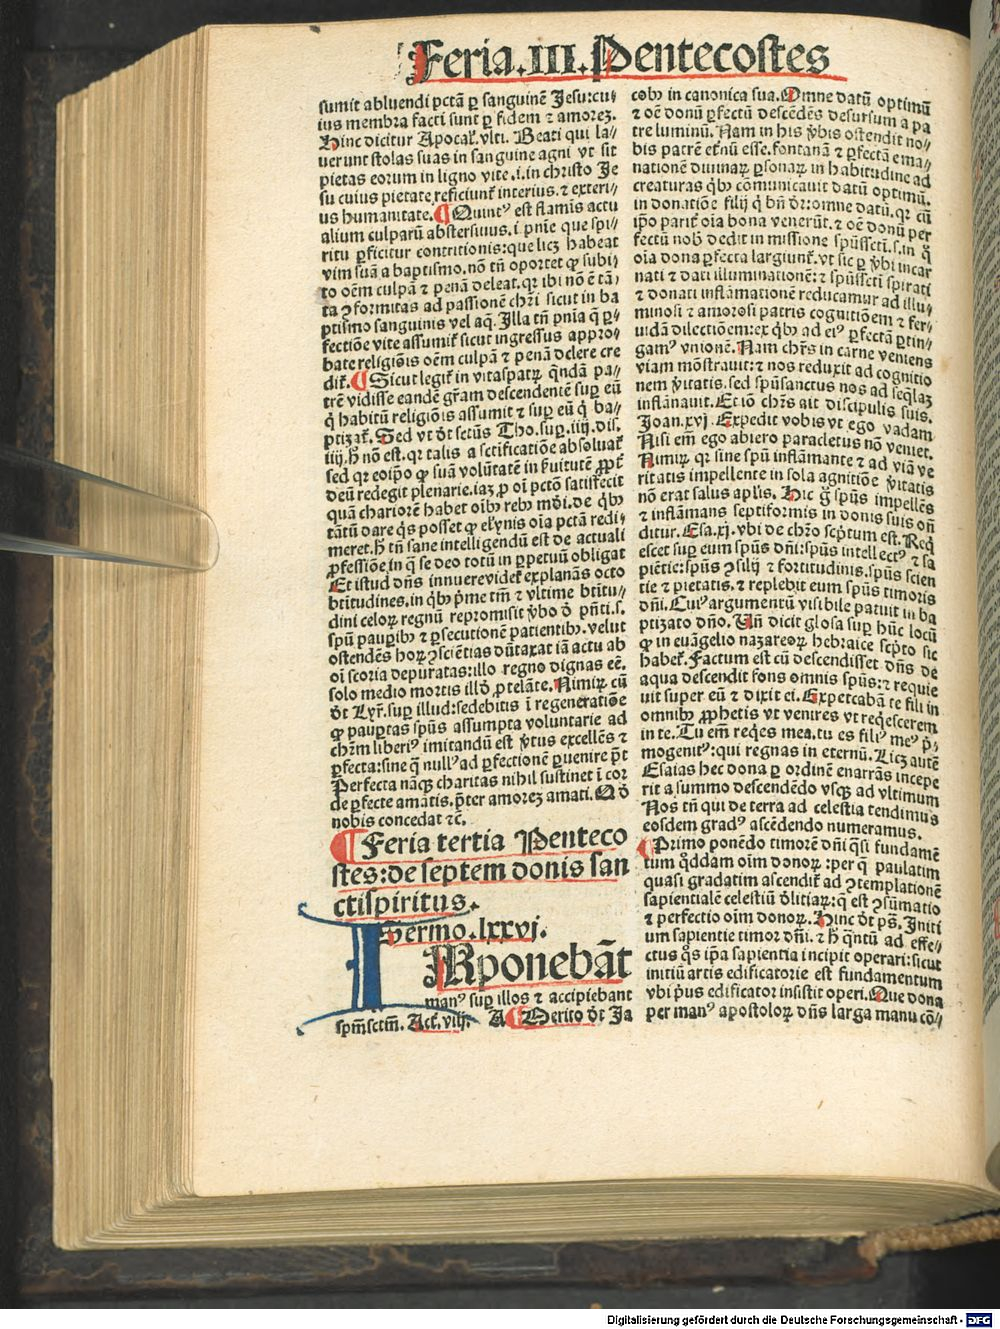 Feria.III.Pentecostes
sumit abluendi pctā ꝑ sanguinē Jesu:cu⸗
ius membra facti sunt ꝑ fidem ⁊ amoreꝫ.
Hinc dicitur Apocal'.vlti. Beati qui la⸗
uerunt stolas suas in sanguine agni vt sit
pietas eorum in ligno vite.i.in christo Je
su cuius pietate reficiunt̄ interius.⁊ exteri⸗
us humanitate. ¶Quintꝰ est flamīs actu
alium culparū abstersiuus.i.pn̄ie que spi⸗
ritu ꝑficitur contritionis:que licꝫ habeat
vim suā a baptismo.nō tn̄ oportet ꝙ subi⸗
to oēm culpā ⁊ penā deleat.qꝛ ibi nō ē tā⸗
ta ꝯformitas ad passionē chr̄i sicut in ba
ptismo sanguinis vel aq̄. Illa tn̄ pn̄ia q̄ ꝑ⸗
fectiōe vite assumit̄ sicut ingressus appro⸗
bate religiōis oēm culpā ⁊ penā delere cre
dit̄. ¶Sicut legit̄ in vitaspatꝝ quēdā pa⸗
trē vidisse eandē gr̄am descendentē sup eū
q̇ habitū religiōis assumit ⁊ sup eū q̇ ba⸗
ptizat̄. Sed vt dt̄ sctūs Tho.sup.iiij.dis.
iiij.h̄ nō est.qꝛ talis a sctificatiōe absoluat̄
sed qꝛ eoip̄o ꝙ suā volūtatē in ẜuitutē ꝓpt̄
deū redegit plenarie.iaꝫ ꝓ oī pctō satisfecit
quā chariorē habet oībꝰ rebꝰ mōi.de qͥbꝫ
tātū dare qͥs posset ꝙ elꝰynis oīa pctā redi⸗
meret.h̄ tn̄ sane intelligendū est de actuali
ꝓfessiōe.in q̄ se deo totū in ꝑpetuū obligat
Et istud dn̄s innuere videt̄ explanās octo
btītudines.in qͥbꝫ pͥme tm̄ ⁊ vltime btītu⸗
dini celoꝝ regnū repromisit ꝟbo d̄ pn̄ti.s.
spū pauꝑibꝫ ⁊ ꝑsecutionē patientibꝫ.velut
ostendēs hoꝝ ꝯsciētias dūtaxat iā actu ab
oī scoria depuratas:illo regno dignas eē.
solo medio mortis illđ ꝓtelāte. Nimiꝝ cū
dt̄ Lyr̄.sup illud:sedebitis ī regeneratiōe
ꝙ pauꝑtas spūs assumpta voluntarie ad
chr̄m liberiꝰ imitandū est ꝟtus excellēs ⁊
ꝑfecta:sine q̄ nullꝰ ad ꝑfectionē ꝑuenire pōt
Perfecta nāqꝫ charitas nihil sustinet ī cor
de ꝑfecte amātis.p̄ter amoreꝫ amati. Qđ
nobis concedat ⁊c̄.
¶Feria tertia Penteco
stes:de septem donis san
ctispiritus.
Sermo.lxxvj.
IMponebāt
manꝰ sup illos ⁊ accipiebant
spm̄sctm̄. Act̄.viij. A ¶Merito dt̄ Ja
cobꝰ in canonica sua. Omne datū optimū
⁊ oē donū ꝑfectū descēdēs desursum a pa
tre luminū. Nam in his ꝟbis ostendit no⸗
bis patrē et̄nū esse.fontanā ⁊ ꝑfectā ema⸗
nationē diuinaꝝ ꝑsonaꝝ in habitudine ad
creaturas qͥbꝫ cōmunicauit datū optimū.
in donatiōe filij q̇ bn̄ dr̄:omne datū.qꝛ cū
ip̄o parit̄ oīa bona venerūt.⁊ oē donū per
fectū nob̄ dedit in missione spūssctī.s.in q̇
oīa dona ꝑfecta largiunt̄.vt sic ꝑ ꝟbi incar
nati ⁊ dati illuminationē:⁊ spūssctī spirati
⁊ donati inflāmationē reducamur ad illu⸗
minosi ⁊ amorosi patris cognitiōem ⁊ fer⸗
uidā dilectiōem:ex qͥbꝫ ad eiꝰ ꝑfectā ꝑtin⸗
gamꝰ vnionē. Nam chr̄s in carne veniens
viam mōstrauit:⁊ nos reduxit ad cognitio
nem ꝟitatis.sed spūsanctus nos ad seqlaꝫ
inflāmauit.Et iō chr̄s ait discipulis suis.
Joan.xvj. Expedit vobis vt ego vadam
Nisi em̄ ego abiero paracletus nō veniet.
Nimiꝝ qꝛ sine spū inflāmante ⁊ ad viā ve
ritatis impellente in sola agnitiōe ꝟitatis
nō erat salus apl̄is. Hic g̊ spūs impellēs
⁊ inflāmans septiformis in donis suis on̄
ditur. Esa.xj.vbi de chr̄o scptum est. Reqͥ
escet sup eum spūs dn̄i:spūs intellectꝰ ⁊ sa
piētie:spūs ꝯsilij ⁊ fortitudinis.spūs scien
tie ⁊ pietatis.⁊ replebit eum spūs timoris
dn̄i. Cuiꝰ argumentū visibile patuit in ba
ptizato dn̄o. Vn̄ dicit glosa sup hūc locū
ꝙ in euāgelio nazareoꝝ hebraice scpto sic
habet̄. Factum est cū descendisset dn̄s de
aqua descendit fons omnis spūs:⁊ requie
uit super eū ⁊ dixit ei. Expectabā te fili in
omnibꝫ ꝓphetis vt venires vt reqͥescerem
in te. Tu em̄ reqͥes mea.tu es filiꝰ meꝰ pͥ⸗
mogenitꝰ:qui regnas in eternū. Licꝫ autē
Esaias hec dona ꝑ ordinē enarrās incepe
rit a summo descendēdo vsqꝫ ad vltimum
Nos tn̄ qui de terra ad celestia tendimus
eosdem gradꝰ ascēdendo numeramus.
¶Primo ponēdo timorē dn̄i qͣsi fundamē
tum qͦddam oīm donoꝝ:per q̄ paulatim
quasi gradatim ascendit̄ ad ꝯtemplationē
sapientialē celestiū dlitiaꝝ:q̄ est ꝯsūmatio
⁊ perfectio oīm donoꝝ. Hinc dt̄ ps̄. Initi
um sapientie timor dn̄i.⁊ h̄ qͣntū ad effe⸗
ctus qͦs ip̄a sapientia incipit operari:sicut
initiū artis edificatorie est fundamentum
vbi pͥus edificator insistit operi. Que dona
per manꝰ apostoloꝝ dn̄s larga manu cō⸗
Digitalisierung gefördert durch die Deutsche Forschungsgemeinschaft - DFG